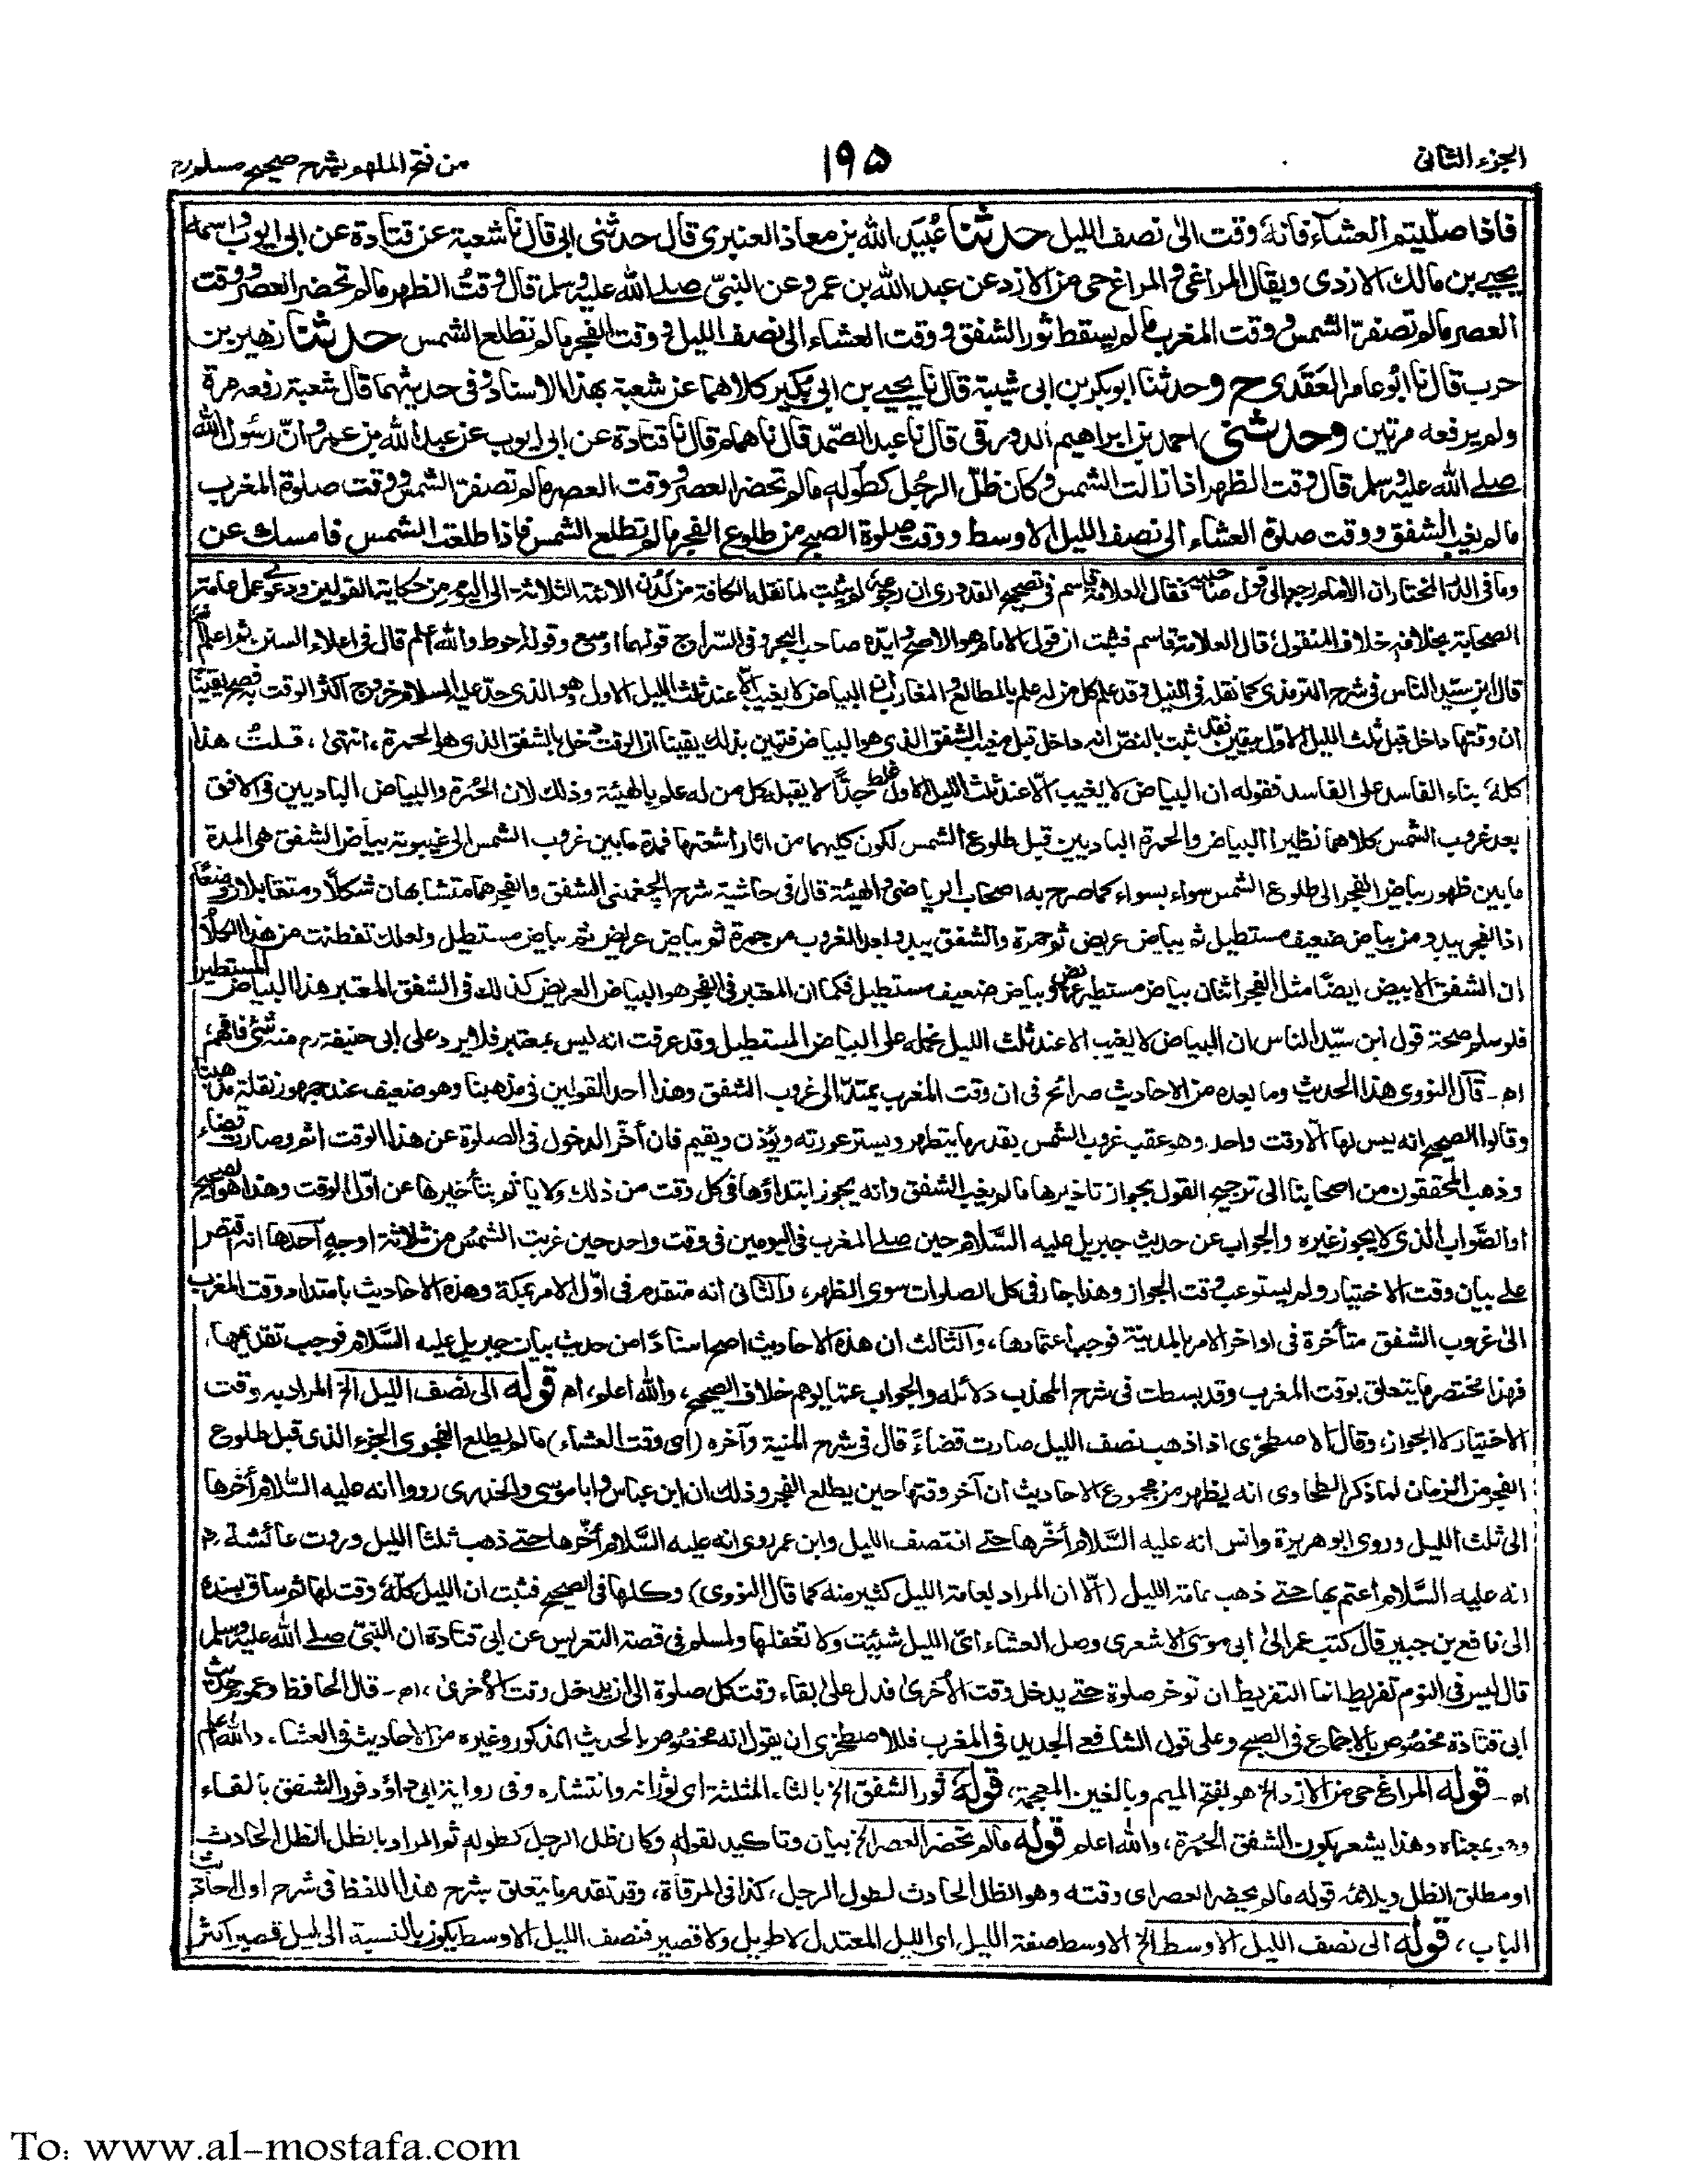 الجزء الثانى
١٩٥
من فتح الملهم بشرح صحيح مسلم
فاذا صلّيتم العشاء فانه وقت الى نصف الليل حدثنا عُبَيد الله بن معاذ العنبرى قال حدثنى ابى قال نا شعبة عن قتادة عن ابى ايوب واسمه
يحيى بن مالك الازدى ويقال المراغى والمراغ حى من الازد عن عبد الله بن عمرو عن النبىّ صلى الله عليه وسلم قال وقتُ الظهر مالم تحضر العصر ووقت
العصر مالم تصفرّ الشمس ووقت المغرب مالم يسقط ثور الشفق ووقت العشاء الى نصف الليل ووقت الفجر مالم تطلع الشمس حدثنا زهير بن
حرب قال نا ابو عامر العَقَدى ح وحدثنا ابو بكر بن ابى شيبة قال نا يحيى بن ابى بُكير كلاهما عن شعبة بهذا الاسناد وفى حديثهما قال شعبة رفعه مرة
ولم يرفعه مرتين وحدثنى احمد بن ابراهيم الدورقى قال نا عبد الصّمد قال نا همام قال نا قتادة عن ابى ايوب عن عبد الله بن عمرو انّ رسول الله
صلى الله عليه وسلم قال وقت الظهر اذا زالت الشمس وكان ظلّ الرجُل كطوله مالم تحضر العصر ووقت العصر مالم تصفرّ الشمس ووقت صلوة المغرب
مالم يغب الشفق ووقت صلوة العشاء الى نصف الليل الاوسط ووقت صلوة الصبح من طلوع الفجر مالم تطلع الشمس فاذا طلعت الشمس فامسك عن
وما فى الدر المختار ان الامام رجع الى قول صاحبيه فقال العلامة قاسم فى تصحيح القدورى ان رجوعه لم يثبت لما نقله الكافة من لدن الائمة الثلاثة الى اليوم من حكاية القولين ودعوى عمل عامة
الصحابة بخلافه خلاف المنقول قال العلامة قاسم فثبت ان قول الامام هو الاصح وايّده صاحب البحر وفى السّراج قولهما اوسع وقوله احوط والله اعلم قال فى اعلاء السنن ثم اعلم
قال ابن سيّد الناس فى شرح الترمذى كما نقله فى النيل وقد علم كل من له علم بالمطالع والمغارب ان البياض لا يغيب الّا عند ثلث الليل الاول وهو الذى حدّ عليه السلام خروج اكثر الوقت به فصح يقينا
ان وقتها داخل قبل ثلث الليل الاوّل بيقين فقد ثبت بالنصّ انه داخل قبل مغيب الشفق الذى هو البياض فتبين بذلك يقينا ان الوقت دخل بالشفق الذى هو الحمرة، انتهى، قلتُ هذا
كله بناء الفاسد على الفاسد فقوله ان البياض لا يغيب الّا عند ثلث الليل الاول غلط جدًّا لا يقبله كل من له علم بالهيئة وذلك لان الحُمرة والبياض الباديين فى الافق
بعد غروب الشمس كلاهما نظيرا البياض والحمرة الباديين قبل طلوع الشمس لكون كليهما من اثار اشعتها فمدة ما بين غروب الشمس الى غيبوبة بياض الشفق هى المدة
ما بين ظهور بياض الفجر الى طلوع الشمس سواء بسواء كما صرح به اصحاب الرياضى والهيئة قال فى حاشية شرح الچغمنى الشفق والفجر هما متشابهان شكلًا ومتقابلان وضعًا
اذ الفجر يبدو من بياض ضعيف مستطيل ثم بياض عريض ثم حمرة والشفق يبدو بعد الغروب من حمرة ثم بياض عريض ثم بياض مستطيل ولعلك تفطنت من هذا الكلام
ان الشفق الابيض ايضًا مثل الفجر اثنان بياض مستطير عريض وبياض ضعيف مستطيل فكما ان المعتبر فى الفجر هو البياض العريض كذلك فى الشفق المعتبر هذا البياض المستطير
فلو سلم صحة قول ابن سيّد الناس ان البياض لا يغيب الا عند ثلث الليل نحمله على البياض المستطيل وقد عرفت انه ليس بمعتبر فلا يرد على ابى حنيفة رح منه شئ فافهم،
اه ـ قال النووى هذا الحديث وما بعده من الاحاديث صرائح فى ان وقت المغرب يمتدّ الى غروب الشفق وهذا احد القولين فى مذهبنا وهو ضعيف عند جمهور نقلة مذهبنا
وقالوا الصحيح انه ليس لها الّا وقت واحد وهو عقب غروب الشمس بقدر ما يتطهر ويستر عورته ويؤذن ويقيم فان أخّر الدخول فى الصلوة عن هذا الوقت اثم وصارت قضاء
وذهب المحققون من اصحابنا الى ترجيح القول بجواز تاخيرها مالم يغب الشفق وانه يجوز ابتداؤها فى كل وقت من ذلك ولا ياثم بتأخيرها عن اوّل الوقت وهذا هو الصحيح
او الصّواب الذى لا يجوز غيره والجواب عن حديث جبريل عليه السَّلام حين صلى المغرب فى اليومين فى وقت واحد حين غربت الشمسُ من ثلاثة اوجهٍ احدها انه اقتصر
على بيان وقت الاختيار ولم يستوعب وقت الجواز وهذا جار فى كل الصلوات سوى الظهر، والثانى انه متقدم فى اوّل الامر بمكة وهذه الاحاديث بامتداد وقت المغرب
الىٰ غروب الشفق متأخرة فى اواخر الامر بالمدينة فوجب اعتمادها، والثالث ان هذه الاحاديث اصح اسنادًا من حديث بيان جبريل عليه السَّلام فوجب تقديمها،
فهذا مختصر ما يتعلق بوقت المغرب وقد بسطت فى شرح المهذب دلائله والجواب عمّا يوهم خلاف الصحيح، والله اعلم، اه قوله الى نصف الليل الخ المراد به وقت
الاختيار لا الجواز، وقال الاصطخرى اذا ذهب نصف الليل صارت قضاءً قال فى شرح المنية وآخره (اى وقت العشاء) مالم يطلع الفجر اى الجزء الذى قبل طلوع
الفجر من الزمان لما ذكر الطحاوى انه يظهر من مجموع الاحاديث ان آخر وقتها حين يطلع الفجر وذلك ان ابن عباس وابا موسى والخدرى رووا انه عليه السَّلام أخّرها
الى ثلث الليل وروى ابو هريرة وانس انه عليه السَّلام أخّرها حتى انتصف الليل وابن عمر روى انه عليه السَّلام أخّرها حتى ذهب ثلثا الليل وروت عائشة رض
انه عليه السَّلام اعتم بها حتى ذهب عامة الليل (الّا ان المراد بعامة الليل كثير منه كما قال النووى) وكلها فى الصحيح فثبت ان الليل كلّه وقت لها ثم ساق بسنده
الى نافع بن جبير قال كتب عمر الى ابى موسى الاشعرى وصل العشاء اىّ الليل شئت ولا تغفلها ولمسلم فى قصة التعريس عن ابى قتادة ان النبىّ صلى الله عليه وسلم
قال ليس فى النوم تفريط انما التفريط ان توخر صلوة حتى يدخل وقت الأخرى فدل على بقاء وقت كل صلوة الى ان يدخل وقت الأخرى، اه ـ قال الحافظ وعموم حديث
ابى قتادة مخصوص بالاجماع فى الصبح وعلى قول الشافعى الجديد فى المغرب فللاصطخرى ان يقول انه مخصوص بالحديث المذكور وغيره من الاحاديث فى العشاء، والله اعلم
اه ـ قوله المراغ حى من الازد الخ هو بفتح الميم وبالغين المعجمة، قوله ثور الشفق الخ بالثاء المثلثة اى ثورانه وانتشاره وفى رواية ابى داؤد فور الشفق بالفاء
وهو بمعناه وهذا يشعر بكون الشفق الحُمرة، والله اعلم قوله مالم تحضر العصر الخ بيان وتاكيد لقوله وكان ظل الرجل كطوله ثم المراد بالظل الظل الحادث
او مطلق الظل ويلائمه قوله مالم يحضر العصر اى وقته وهو الظل الحادث لطول الرجل، كذا فى المرقاة، وقد تقدم ما يتعلق بشرح هذا اللفظ فى شرح اول احاديث
الباب، قوله الى نصف الليل الاوسط الخ الاوسط صفة الليل اى الليل المعتدل لا طويل ولا قصير فنصف الليل الاوسط يكون بالنسبة الى ليل قصير اكثر
To: www.al-mostafa.com